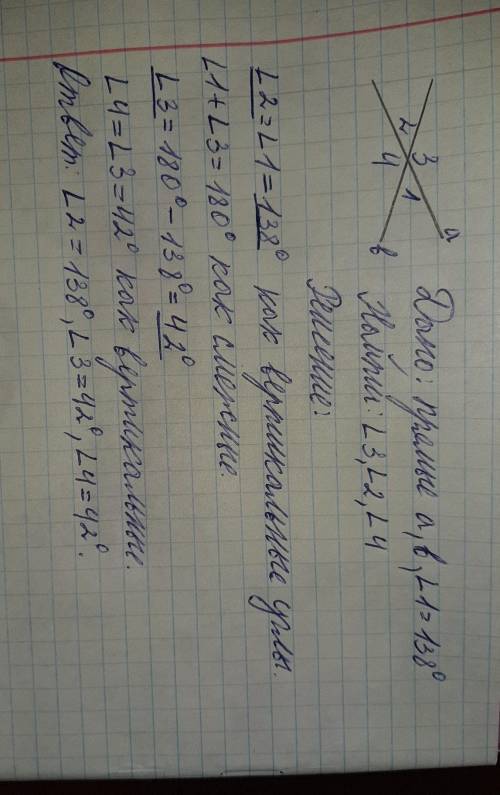 a
3
1
2
4
в
Дано: прямые a, в, ∠1=138°
Найти: ∠3, ∠2, ∠4
Решение:
∠2=∠1=138° как вертикальные углы.
∠1+∠3=180° как смежные.
∠3=180°-138°=42°
∠4=∠3=42° как вертикальные.
Ответ: ∠2=138°, ∠3=42°, ∠4=42°.